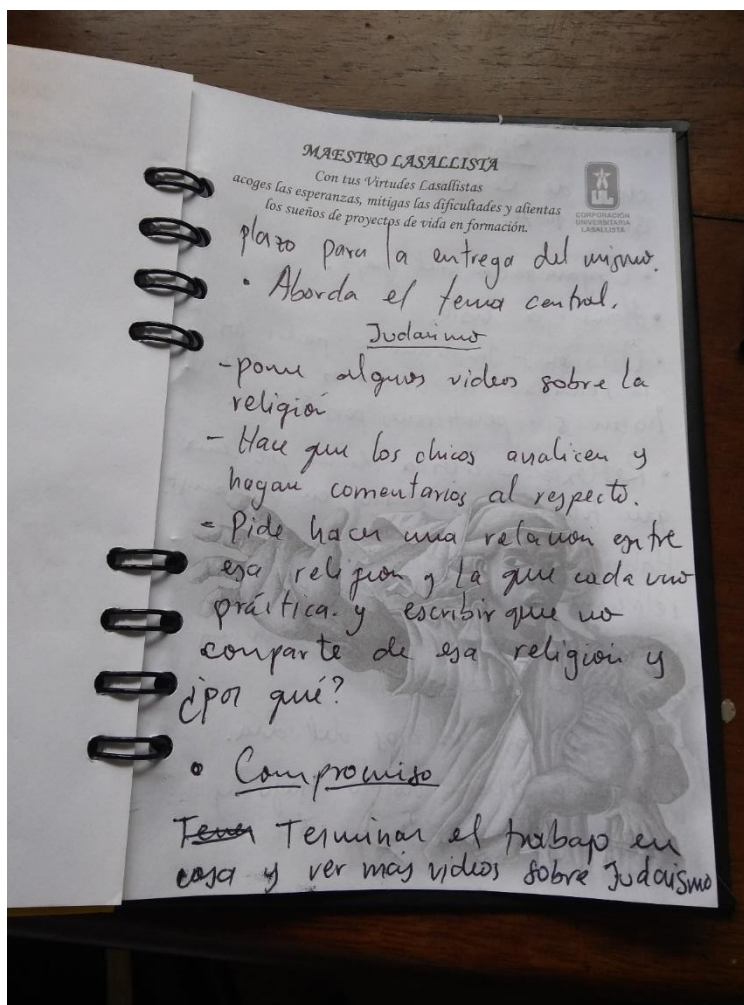 MAESTRO LASALLISTA
Con tus Virtudes Lasallistas
acoges las esperanzas, mitigas las dificultades y alientas
los sueños de proyectos de vida en formación.
UL
CORPORACIÓN
UNIVERSITARIA
LASALLISTA
plazo para la entrega del mismo.
• Aborda el tema central.
Judaismo
- pone algunos videos sobre la
religión
- Hace que los chicos analicen y
hagan comentarios al respecto.
- Pide hacer una relación entre
esa religion y la que cada uno
práctica. y escribir que no
comparte de esa religión y
¿por qué?
• Compromiso
Terminar el trabajo en
casa y ver más videos sobre Judaismo